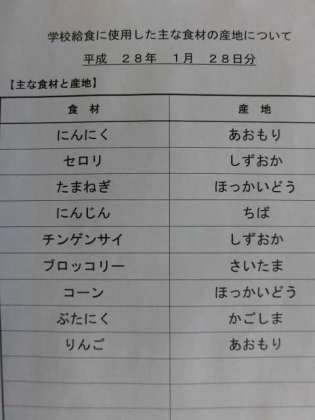 学校給食に使用した主な食材の産地について
平成 28年 1月 28日分
【主な食材と産地】
食 材 産 地
にんにく あおもり
セロリ しずおか
たまねぎ ほっかいどう
にんじん ちば
チンゲンサイ しずおか
ブロッコリー さいたま
コーン ほっかいどう
ぶたにく かごしま
りんご あおもり